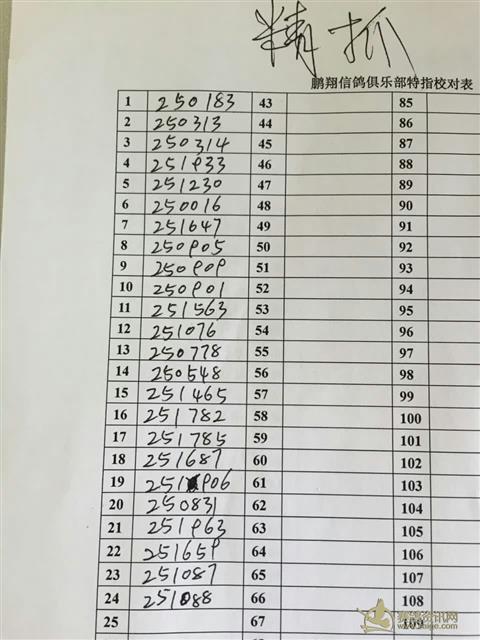 精抓
鹏翔信鸽俱乐部特指校对表
1 250183 43 85
2 250313 44 86
3 250314 45 87
4 251933 46 88
5 251230 47 89
6 250016 48 90
7 251647 49 91
8 250905 50 92
9 250909 51 93
10 250901 52 94
11 251563 53 95
12 251076 54 96
13 250778 55 97
14 250548 56 98
15 251465 57 99
16 251782 58 100
17 251785 59 101
18 251687 60 102
19 251906 61 103
20 250831 62 104
21 251963 63 105
22 251659 64 106
23 251087 65 107
24 251088 66 108
25 67 109